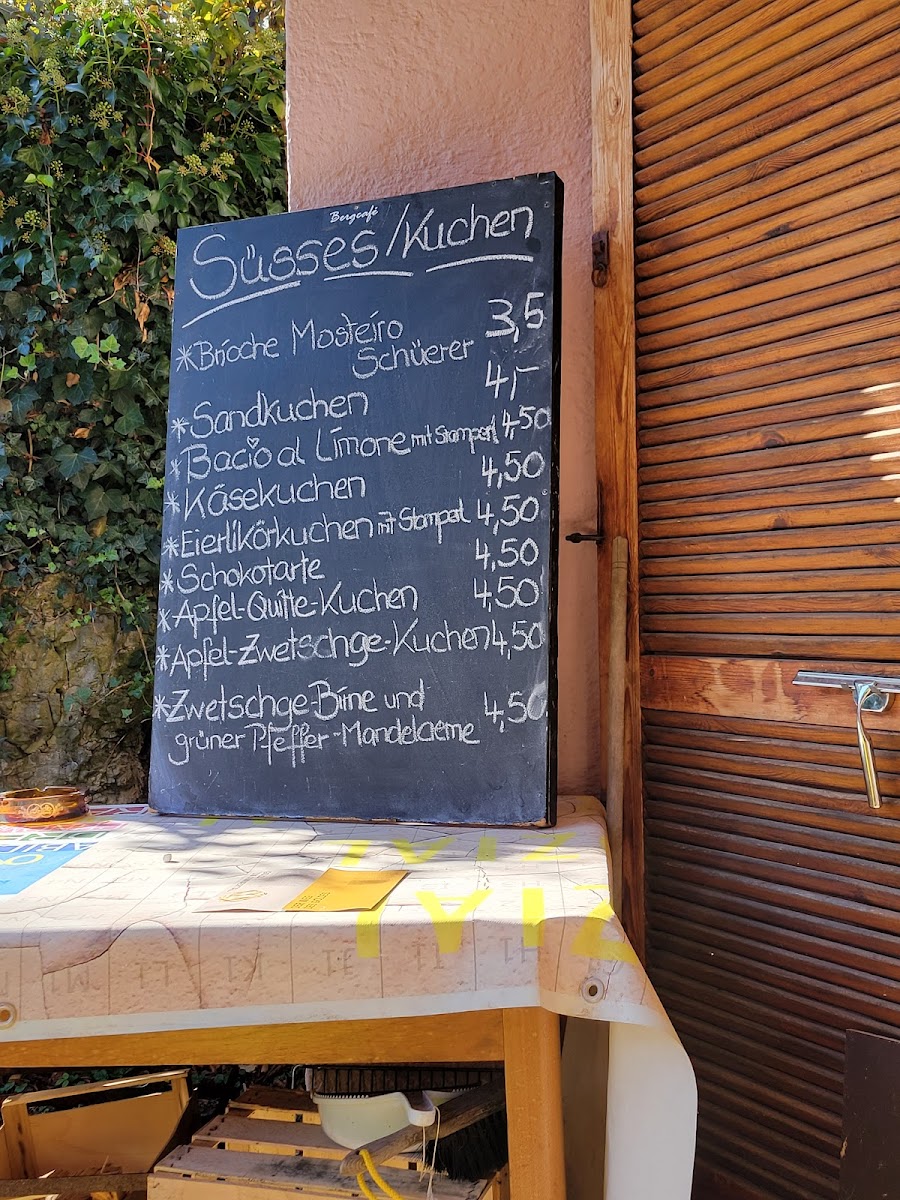 Bergcafé
Süsses/Kuchen
*Brioche Mosteiro 3,5
Schüerer
*Sandkuchen 4,-
*Bacio al Límone mit Stamperl 4,50
*Käsekuchen 4,50
*Eierlikörkuchen mit Stamperl 4,50
*Schokotarte 4,50
*Apfel-Quitte-Kuchen 4,50
*Apfel-Zwetschge-Kuchen 4,50
*Zwetschge-Birne und
grüner Pfeffer-Mandelcreme 4,50